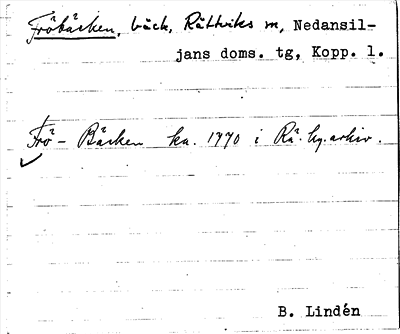 Fröbäcken, bäck, Rättviks sn, Nedansil-
jans doms. tg, Kopp. l.
Frö-Bäcken ka. 1770 i Rä. ky. arkiv.
B. Lindén